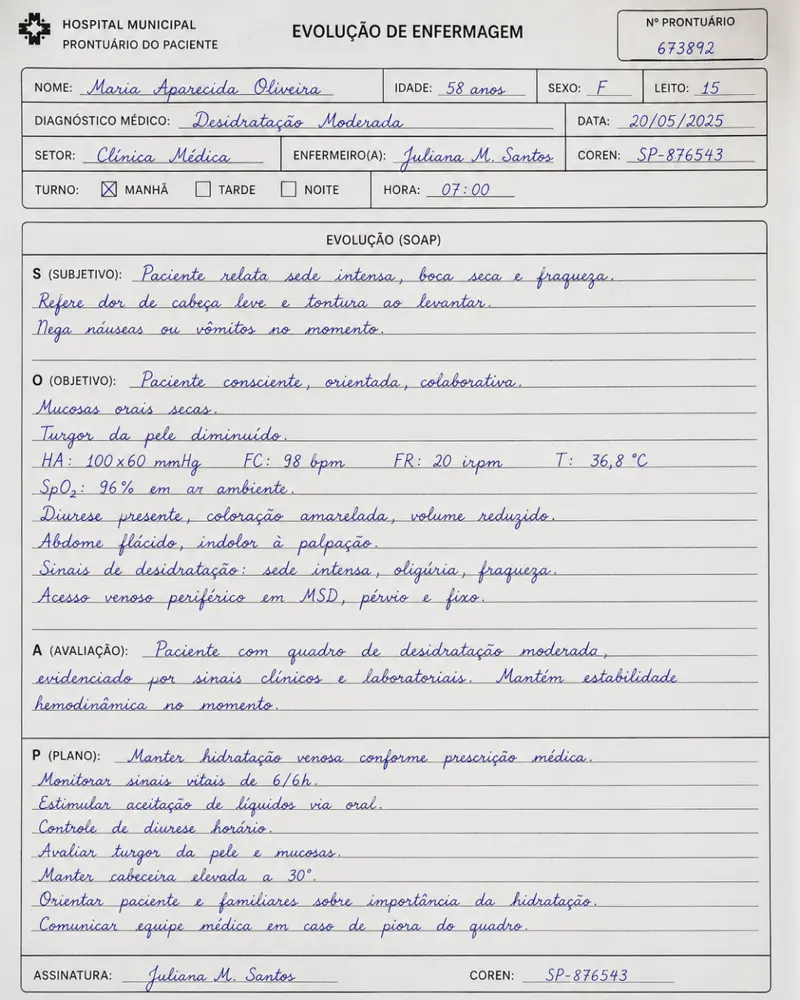 HOSPITAL MUNICIPAL
PRONTUÁRIO DO PACIENTE
EVOLUÇÃO DE ENFERMAGEM
Nº PRONTUÁRIO
673892
NOME: Maria Aparecida Oliveira IDADE: 58 anos SEXO: F LEITO: 15
DIAGNÓSTICO MÉDICO: Desidratação Moderada DATA: 20/05/2025
SETOR: Clínica Médica ENFERMEIRO(A): Juliana M. Santos COREN: SP-876543
TURNO: ☒ MANHÃ ☐ TARDE ☐ NOITE HORA: 07:00
EVOLUÇÃO (SOAP)
S (SUBJETIVO): Paciente relata sede intensa, boca seca e fraqueza.
Refere dor de cabeça leve e tontura ao levantar.
Nega náuseas ou vômitos no momento.
O (OBJETIVO): Paciente consciente, orientada, colaborativa.
Mucosas orais secas.
Turgor da pele diminuído.
HA: 100x60 mmHg FC: 98 bpm FR: 20 irpm T: 36,8 °C
SpO₂: 96% em ar ambiente.
Diurese presente, coloração amarelada, volume reduzido.
Abdome flácido, indolor à palpação.
Sinais de desidratação: sede intensa, oligúria, fraqueza.
Acesso venoso periférico em MSD, pérvio e fixo.
A (AVALIAÇÃO): Paciente com quadro de desidratação moderada,
evidenciado por sinais clínicos e laboratoriais. Mantém estabilidade
hemodinâmica no momento.
P (PLANO): Manter hidratação venosa conforme prescrição médica.
Monitorar sinais vitais de 6/6h.
Estimular aceitação de líquidos via oral.
Controle de diurese horário.
Avaliar turgor da pele e mucosas.
Manter cabeceira elevada a 30°.
Orientar paciente e familiares sobre importância da hidratação.
Comunicar equipe médica em caso de piora do quadro.
ASSINATURA: Juliana M. Santos COREN: SP-876543